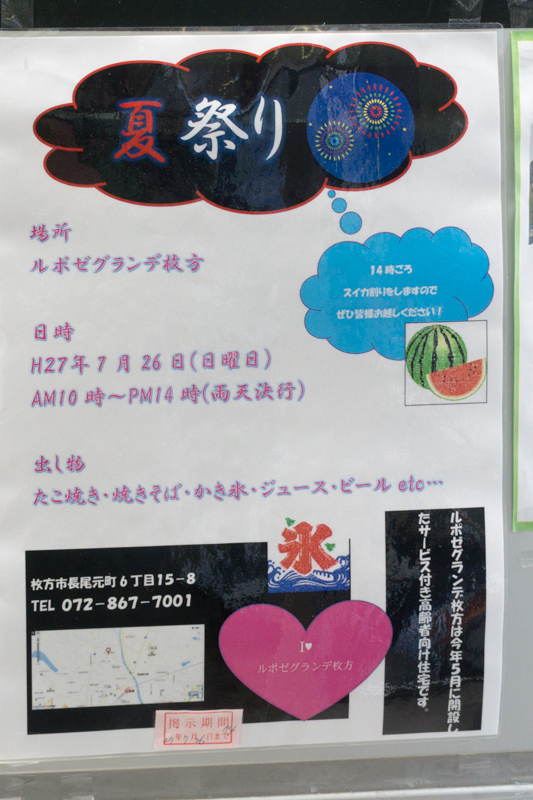 夏祭り
場所
ルポゼグランデ枚方
14時ごろ
スイカ割りをしますので
ぜひ皆様お越しください!
日時
H27年7月26日(日曜日)
AM10時～PM14時(雨天決行)
出し物
たこ焼き・焼きそば・かき氷・ジュース・ビール etc…
氷
枚方市長尾元町6丁目15-8
TEL 072-867-7001
I♥
ルポゼグランデ枚方
ルポゼグランデ枚方は今年5月に開設し
たサービス付き高齢者向け住宅です。
掲示期間
27年7月26日まで